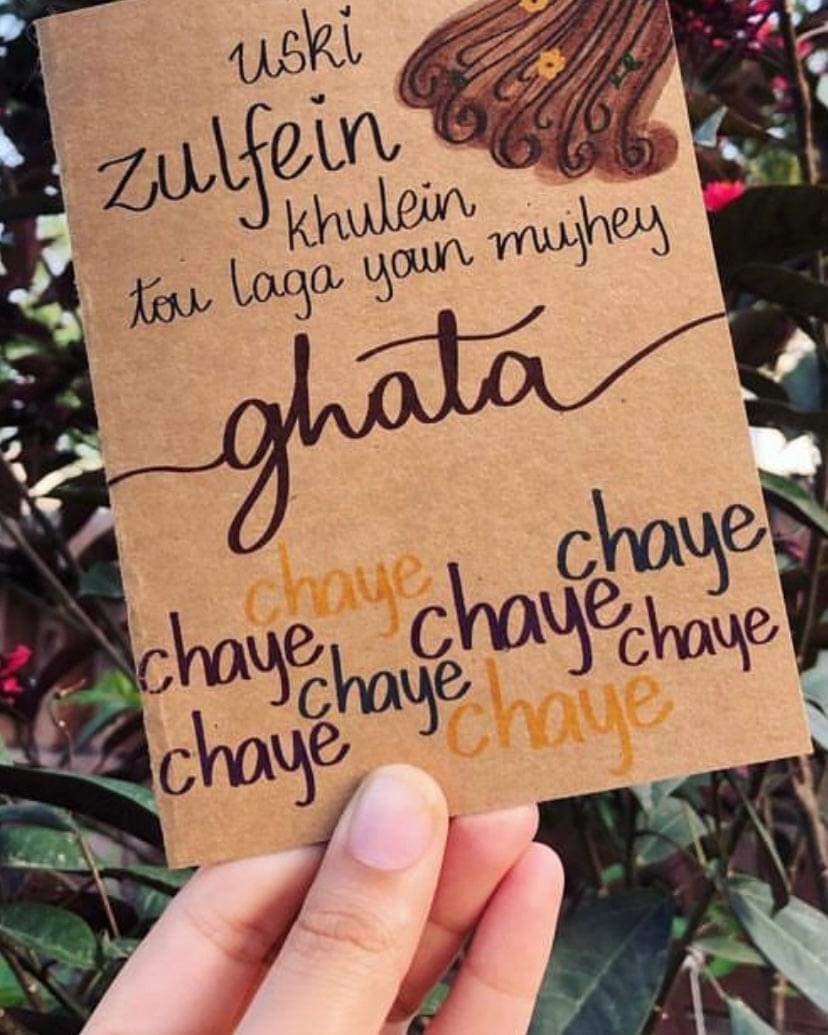 uski
zulfein
khulein
tou laga youn mujhey
ghata
chaye
chaye
chaye
chaye
chaye
chaye
chaye
chaye